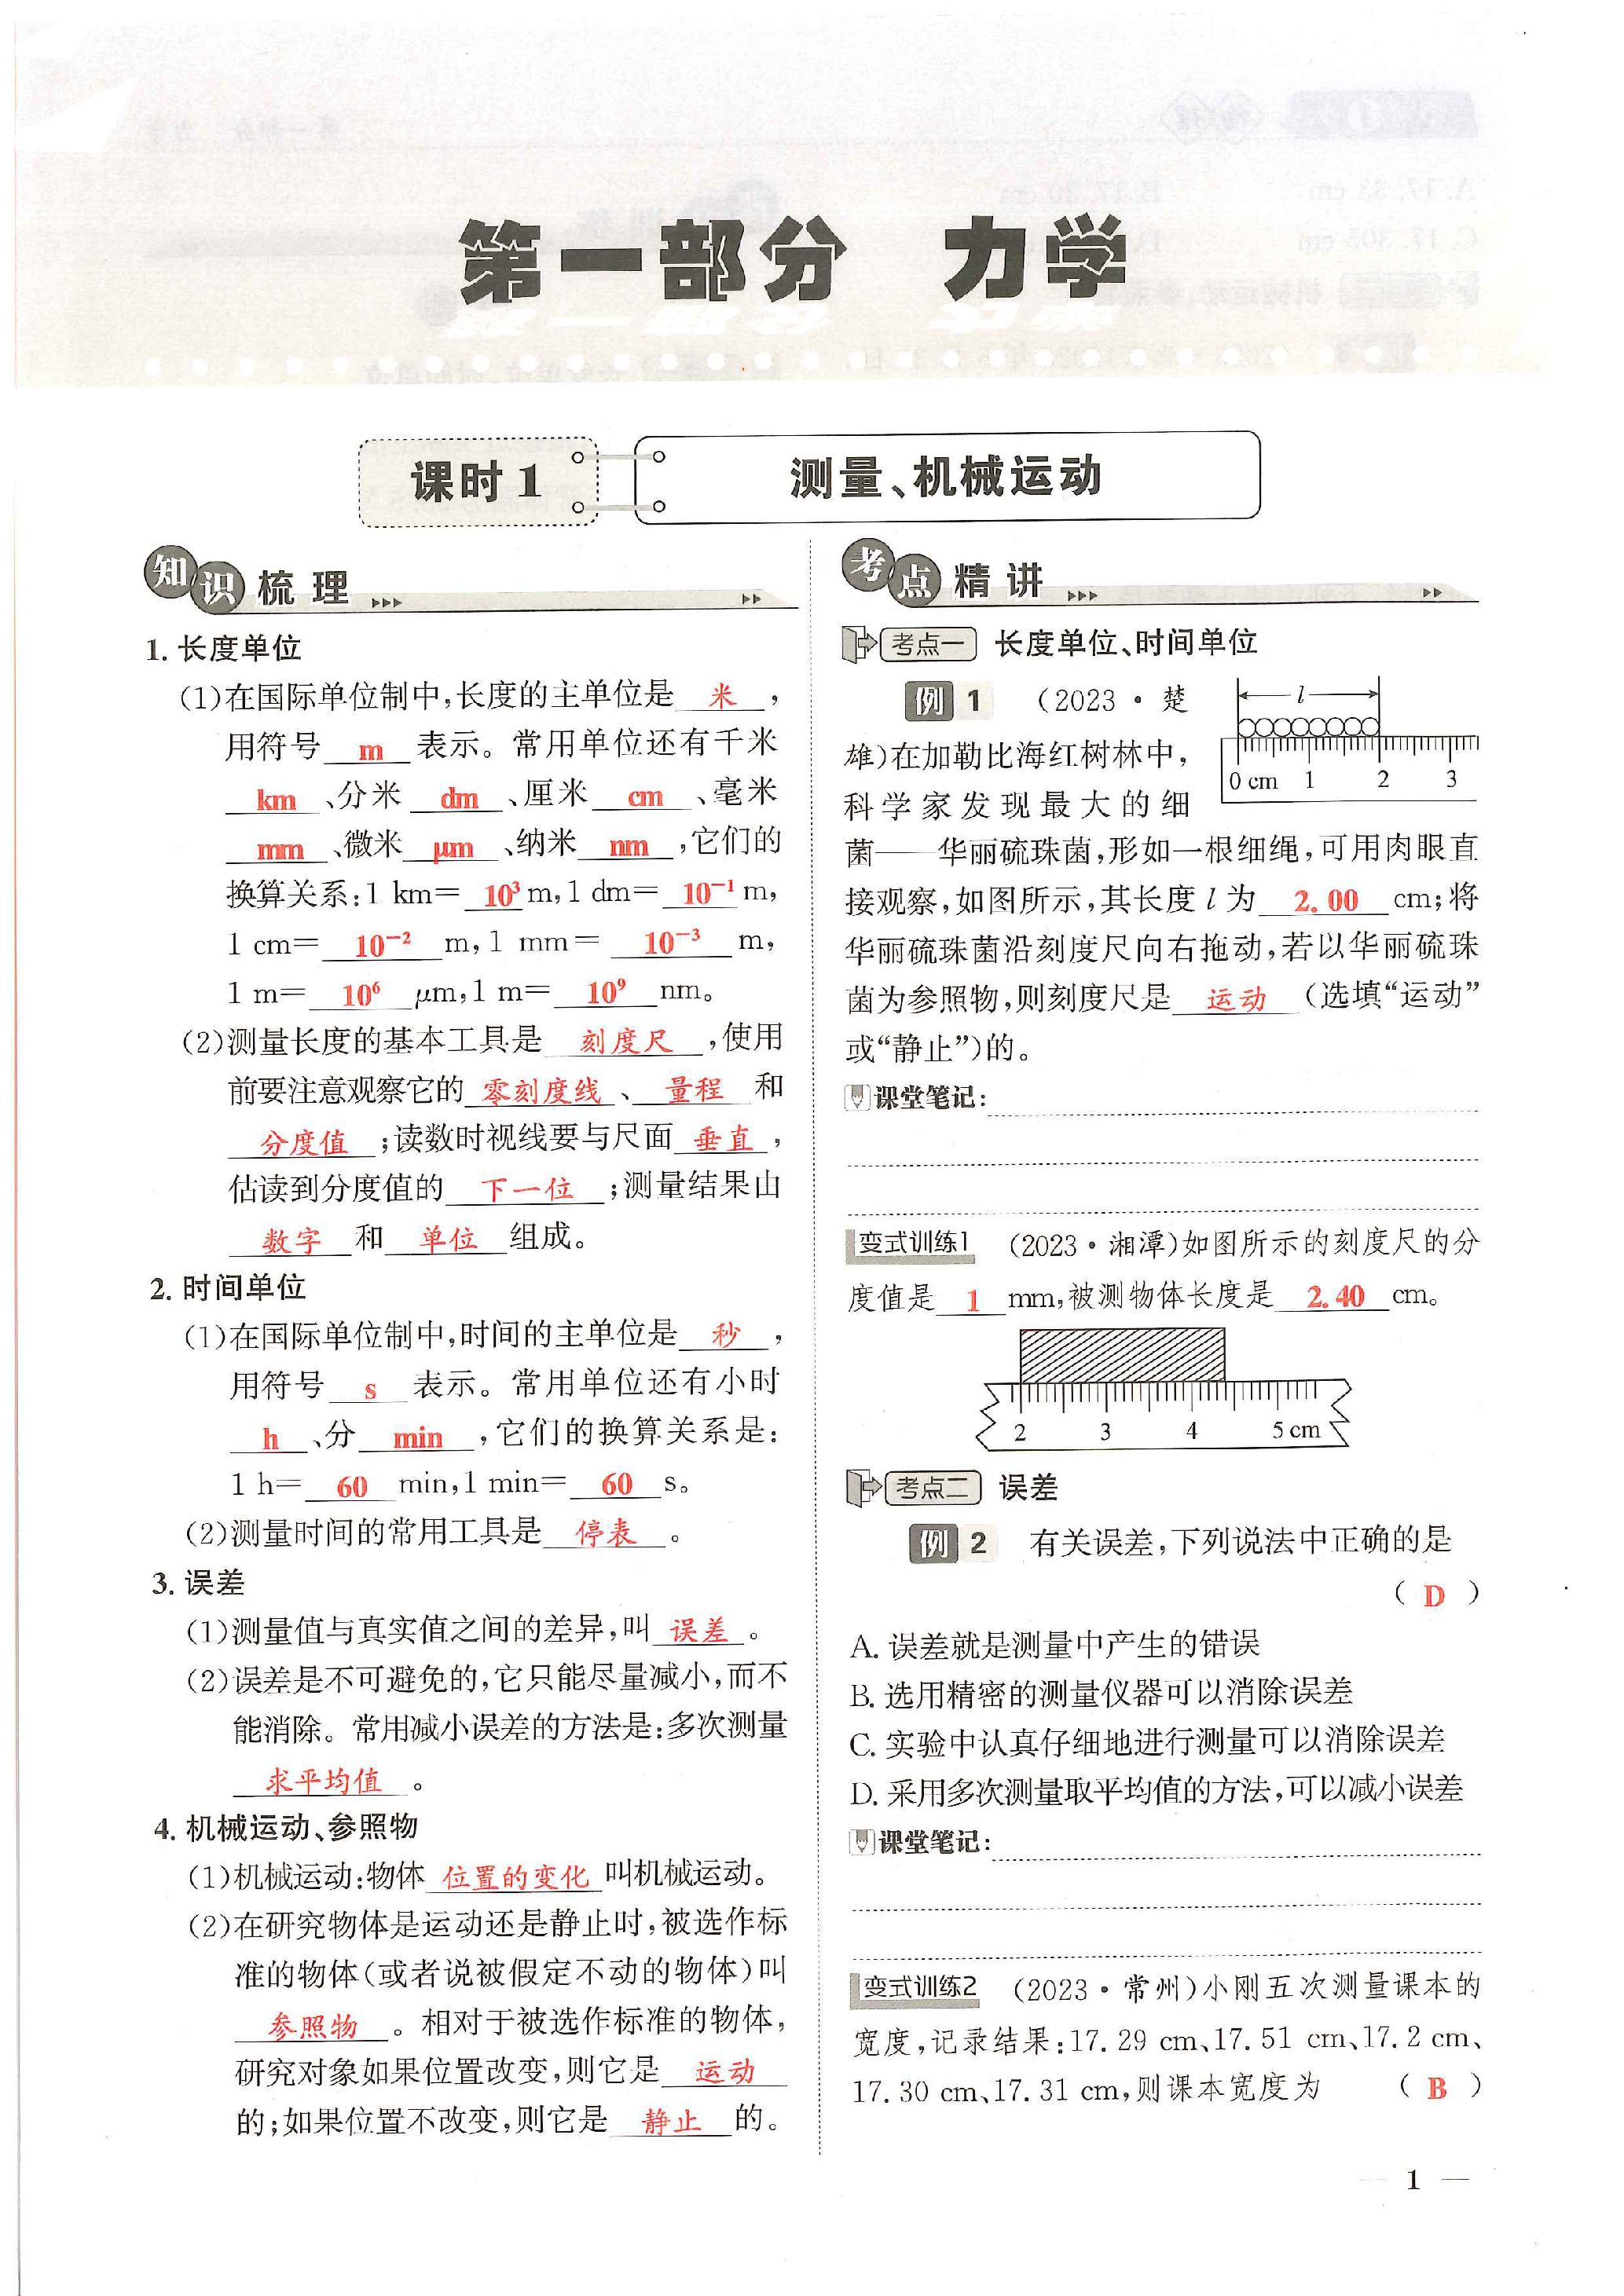 第一部分 力学
课时1 测量、机械运动
知识梳理
1. 长度单位
(1)在国际单位制中,长度的主单位是 米 ,
用符号 m 表示。常用单位还有千米
km 、分米 dm 、厘米 cm 、毫米
mm 、微米 μm 、纳米 nm ,它们的
换算关系:1 km= 10³ m,1 dm= 10⁻¹ m,
1 cm= 10⁻² m,1 mm= 10⁻³ m,
1 m= 10⁶ μm,1 m= 10⁹ nm。
(2)测量长度的基本工具是 刻度尺 ,使用
前要注意观察它的 零刻度线 、 量程 和
分度值 ;读数时视线要与尺面 垂直 ,
估读到分度值的 下一位 ;测量结果由
数字 和 单位 组成。
2. 时间单位
(1)在国际单位制中,时间的主单位是 秒 ,
用符号 s 表示。常用单位还有小时
h 、分 min ,它们的换算关系是:
1 h= 60 min,1 min= 60 s。
(2)测量时间的常用工具是 停表 。
3. 误差
(1)测量值与真实值之间的差异,叫 误差 。
(2)误差是不可避免的,它只能尽量减小,而不
能消除。常用减小误差的方法是:多次测量
求平均值 。
4. 机械运动、参照物
(1)机械运动:物体 位置的变化 叫机械运动。
(2)在研究物体是运动还是静止时,被选作标
准的物体(或者说被假定不动的物体)叫
参照物 。相对于被选作标准的物体,
研究对象如果位置改变,则它是 运动
的;如果位置不改变,则它是 静止 的。
考点精讲
考点一 长度单位、时间单位
例1 (2023·楚
雄)在加勒比海红树林中,
科学家发现最大的细
l
0 cm 1 2 3
菌——华丽硫珠菌,形如一根细绳,可用肉眼直
接观察,如图所示,其长度 l 为 2.00 cm;将
华丽硫珠菌沿刻度尺向右拖动,若以华丽硫珠
菌为参照物,则刻度尺是 运动 (选填“运动”
或“静止”)的。
课堂笔记:
变式训练1 (2023·湘潭)如图所示的刻度尺的分
度值是 1 mm,被测物体长度是 2.40 cm。
2 3 4 5 cm
考点二 误差
例2 有关误差,下列说法中正确的是
( D )
A. 误差就是测量中产生的错误
B. 选用精密的测量仪器可以消除误差
C. 实验中认真仔细地进行测量可以消除误差
D. 采用多次测量取平均值的方法,可以减小误差
课堂笔记:
变式训练2 (2023·常州)小刚五次测量课本的
宽度,记录结果:17.29 cm、17.51 cm、17.2 cm、
17.30 cm、17.31 cm,则课本宽度为 ( B )
— 1 —